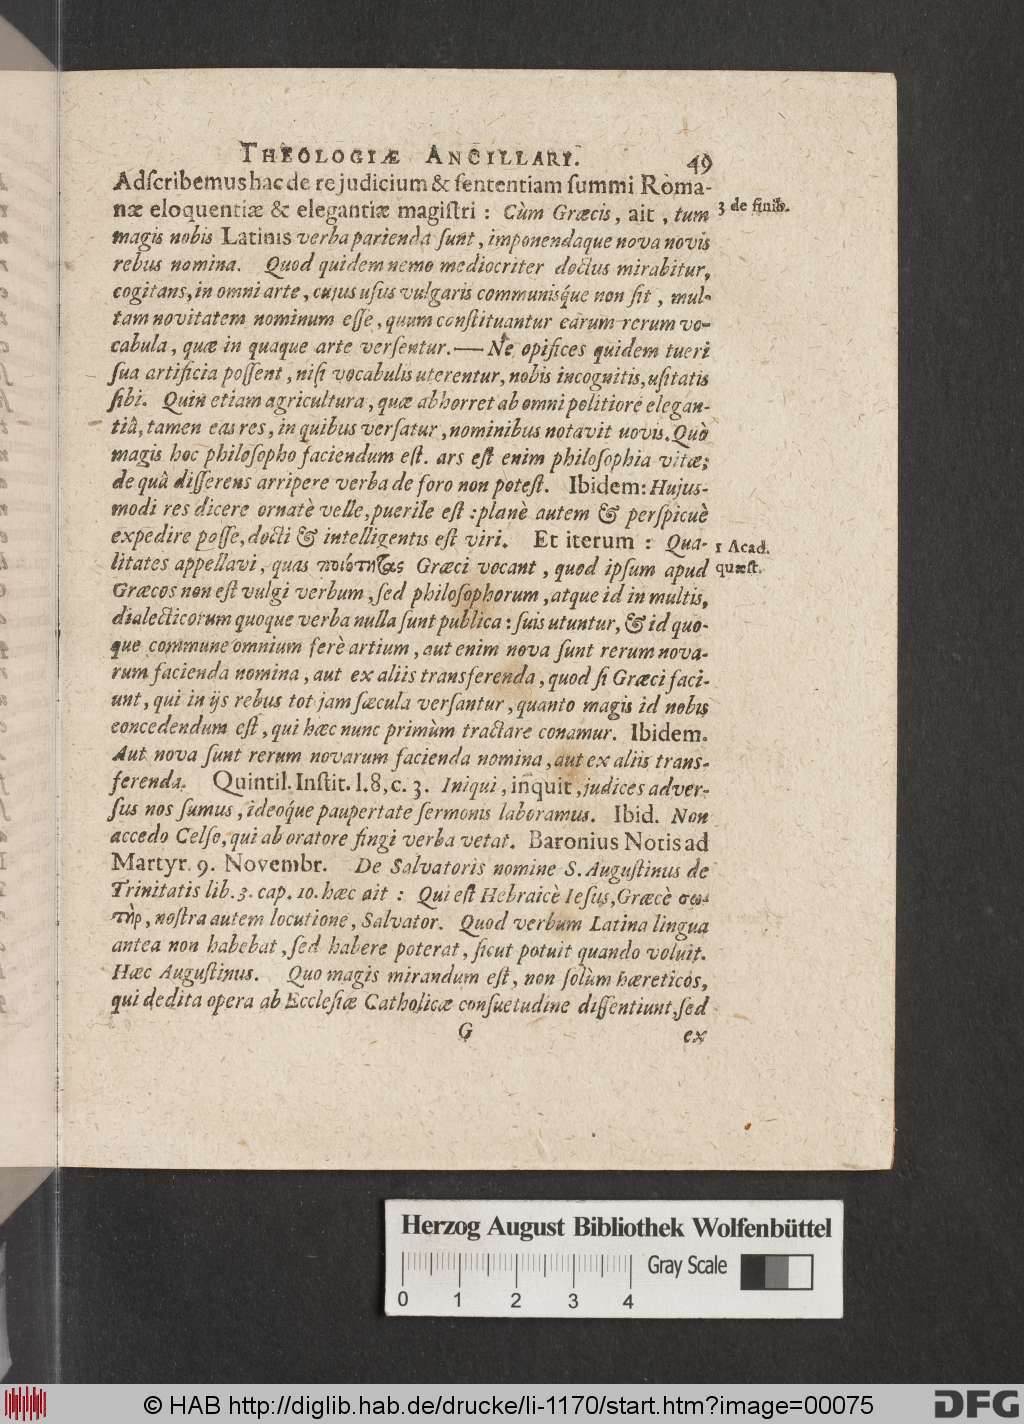 THEOLOGIÆ ANCILLARI. 49
Adſcribemus hac de re judicium & ſententiam ſummi Roma-
næ eloquentiæ & elegantiæ magiſtri : Cùm Græcis, ait, tum
3 de finib.
magis nobis Latinis verba parienda ſunt, imponendaque nova novis
rebus nomina. Quod quidem nemo mediocriter doctus mirabitur,
cogitans, in omni arte, cujus uſus vulgaris communisq́ue non ſit, mul-
tam novitatem nominum eſſe, quum conſtituantur earum rerum vo-
cabula, quæ in quaque arte verſentur.— Ne opifices quidem tueri
ſua artificia poſſent, niſi vocabulis uterentur, nobis incognitis, uſitatis
ſibi. Quin etiam agricultura, quæ abhorret ab omni politiore elegan-
tiâ, tamen eas res, in quibus verſatur, nominibus notavit uovis. Quò
magis hoc philoſopho faciendum eſt. ars eſt enim philoſophia vitæ;
de quâ diſſerens arripere verba de foro non poteſt. Ibidem: Hujus-
modi res dicere ornatè velle, puerile eſt : planè autem & perſpicuè
expedire poſſe, docti & intelligentis eſt viri. Et iterum : Qua-
1 Acad.
quæſt.
litates appellavi, quas ποιότητας Græci vocant, quod ipſum apud
Græcos non eſt vulgi verbum, ſed philoſophorum, atque id in multis,
dialecticorum quoque verba nulla ſunt publica : ſuis utuntur, & id quo-
que commune omnium ferè artium, aut enim nova ſunt rerum nova-
rum facienda nomina, aut ex aliis transferenda, quod ſi Græci faci-
unt, qui in ijs rebus tot jam ſæcula verſantur, quanto magis id nobis
concedendum eſt, qui hæc nunc primùm tractare conamur. Ibidem.
Aut nova ſunt rerum novarum facienda nomina, aut ex aliis trans-
ferenda. Quintil. Inſtit. l. 8, c. 3. Iniqui, inquit, judices adver-
ſus nos ſumus, ideoq́ue paupertate ſermonis laboramus. Ibid. Non
accedo Celſo, qui ab oratore fingi verba vetat. Baronius Notis ad
Martyr. 9. Novembr. De Salvatoris nomine S. Auguſtinus de
Trinitatis lib. 3. cap. 10. hæc ait : Qui eſt Hebraicè Ieſus, Græcè σω-
τὴρ, noſtra autem locutione, Salvator. Quod verbum Latina lingua
antea non habebat, ſed habere poterat, ſicut potuit quando voluit.
Hæc Auguſtinus. Quo magis mirandum eſt, non ſolùm hæreticos,
qui dedita opera ab Eccleſiæ Catholicæ conſuetudine diſſentiunt, ſed
G ex
Herzog August Bibliothek Wolfenbüttel
Gray Scale
0 1 2 3 4
© HAB http://diglib.hab.de/drucke/li-1170/start.htm?image=00075
DFG